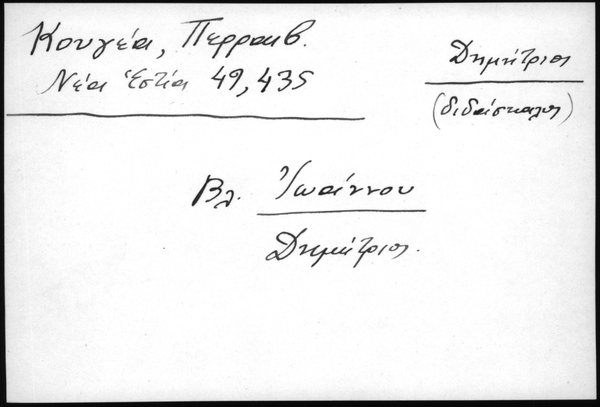 Κουγέα, Περραιβ.
Νέα Ἑστία 49, 435
Δημήτριος
(διδάσκαλος)
Βλ. Ἰωάννου
Δημήτριος.